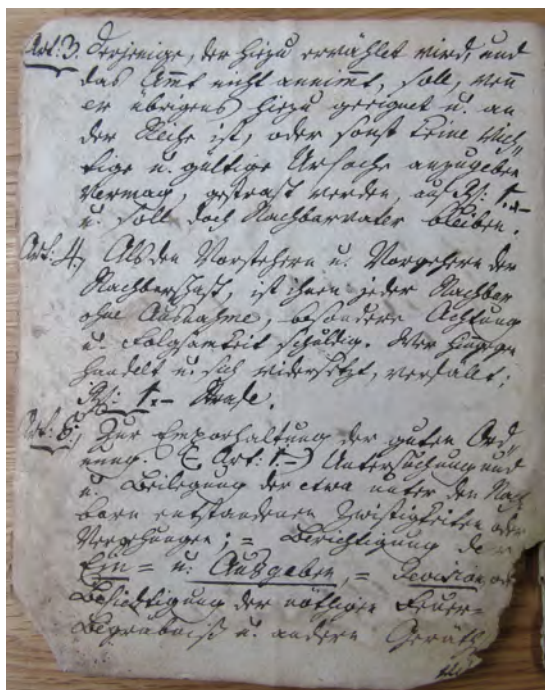 Art: 3. Derjenige, der hiezu erwählet wird, und
das Amt nicht annimt, soll, wenn
er übrigens hiezu geeignet u. an
der Reihe ist, oder sonst keine wich-
tige u. gültige Ursache anzugeben
vermag, gestraft werden, auf Rf: 1.-
u. soll doch Nachbarvater bleiben.
Art: 4. Als den Vorstehern u. Vorgehern der
Nachberschaft, ist ihnen jeder Nachbar
ohne Ausnahme, besondere Achtung
u. Folgsamkeit schuldig. Wer hingegen
handelt u. sich widersetzt, verfällt:
Rf: 1.- Strafe.
Art: 5. Zur Emporhaltung der guten Ord-
nung. (Art: 1.-) Untersuchung und
u. Beilegung der etwa unter den Nach
barn entstandenen Zwistigkeiten oder
Vergehungen; = Berichtigung der
Ein= u: Ausgaben, = Revision od
Besichtigung der nöthigen Feuer=
Begräbniß u. andern Geräth